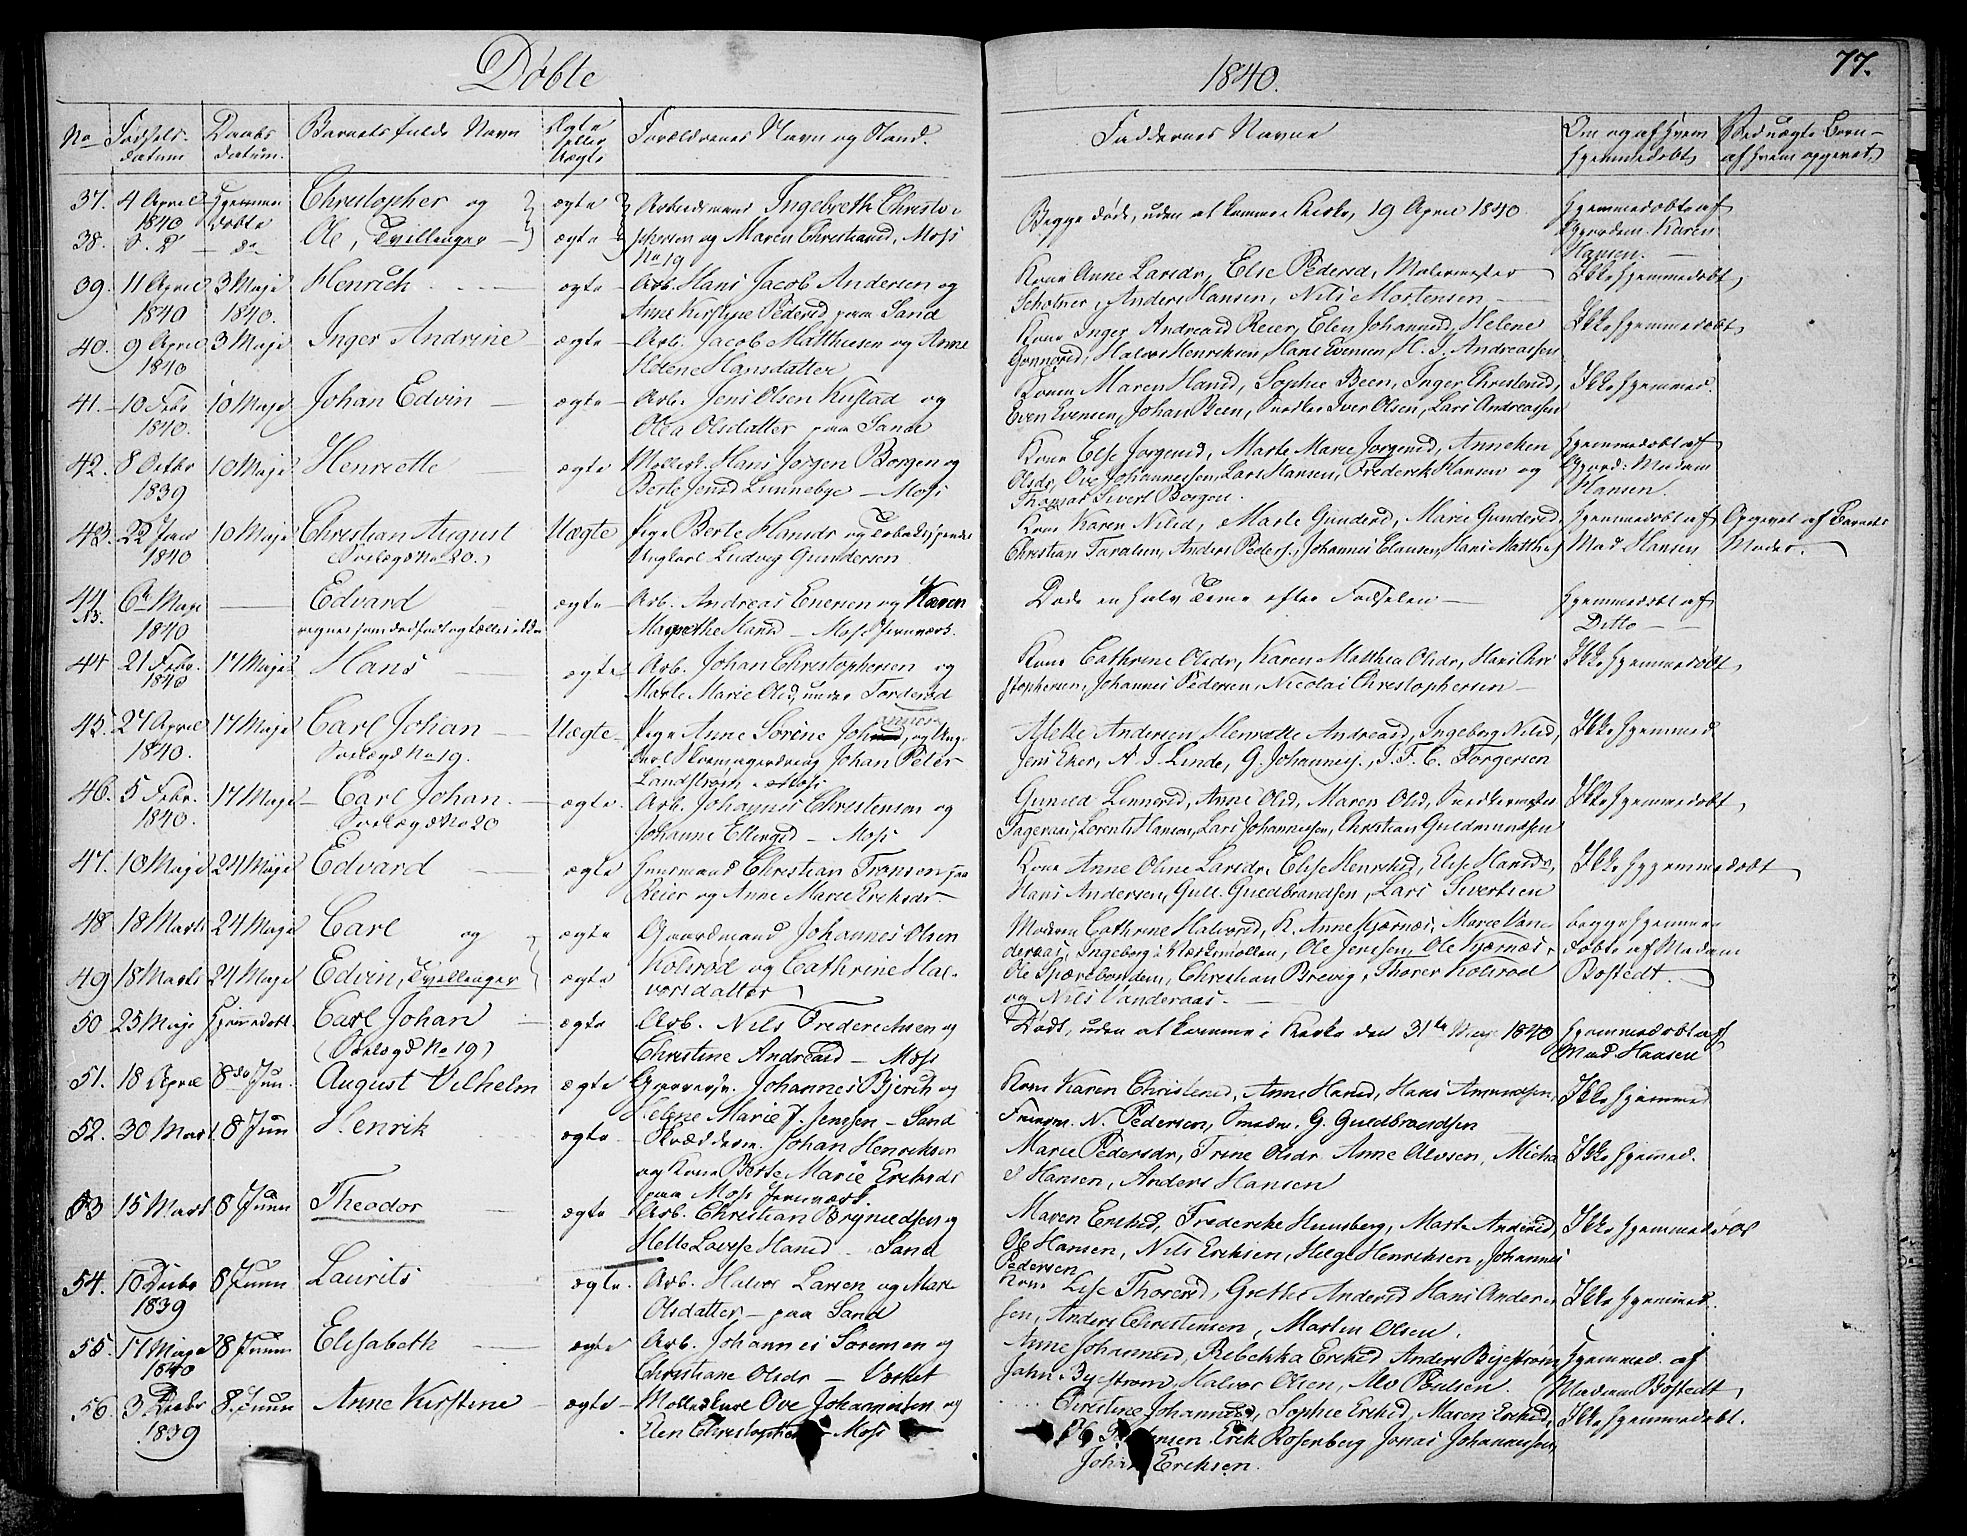 Döbte
1840.
77.
No Fødsels- datum Daabs datum. Barnets fulde Navn Ægte eller Uægte Forældrenes Navn og Stand. Faddernes Navne Om og af hvem hjemmedøbt Ved uægte Børn af hvem opgivet
37. 4 April 1840 Hjemmedøbte Christopher og ægte Arbeidsmand Ingebreth Christo- Begge døde, uden at komme i Kirke, 19 April 1840 Hjemmedøbte af
38. d. d. Ole, Tvillinger ægte phersen og Maren Christiansd, Moss No 19 Gjordem. Karen Hansen.
39. 11 April 1840 3 Maji 1840. Henrich ægte Arb. Hans Jacob Andersen og Kone Anne Larsdr, Else Pedersd, Malermester Ikke hjemmedøbt
Anne Kirstine Pedersd paa Sand Scholner, Anders Hansen, Nils Mortensen
40. 9 April 1840 3 Maji Inger Andrine ægte Arb. Jacob Matthiesen og Anne Kone Inger Andreasd Reier, Elen Johannesd, Helene Ikke hjemmedøbt
Helene Hansdatter Gunnarsd, Halvor Henriksen, Hans Evensen, H. J. Andreassen
41. 10 Febr 1840. 10 Maji Johan Edvin ægte Arb. Jens Olsen Kustad og Konen Maren Hansd, Sophie Been, Inger Christensd, Ikke hjemmed.
Olea Olsdatter paa Sand Even Evensen, Johan Been, Snedker Iver Olsen, Lars Andreassen
42. 8 Octbr 1839 10 Maji Henriette ægte Møllerk. Hans Jørgen Borgen og Kone Else Jørgensd, Marte Marie Jørgensd, Anneken Hjemmedøbt af
Berte Jensd Lunnebye - Moss Olsdr, Ove Johannessen, Lars Hansen, Frederik Hansen og Gjord: Madam
Sivert Borgen. Hansen.
43. 22 Jan 1840 10 Maji Christian August Uægte Pige Berte Hansdr og Tobakspinder Kone Karen Nilsd, Marte Gundersd, Marie Gundersd, Hjemmedøbt af Opgivet af Barnets
No 20.) Ungkarl Ludvig Gundersen. Christian Taralsen, Anders Peders., Johannes Clausen, Hans Matthis Mad Hansen Moder.
44. NB. 6te Maji 1840 Edvard ægte Arb. Andreas Enersen og Karen Døde en halv Time efter Fødselen Hjemmedøbt af
regnes som dødfødt og tælles ikke Margrethe Hansd - Moss Jernværk. Ditto
44 21 Febr. 1840 17 Maji Hans ægte Arb. Johan Christophersen og Kone Cathrine Olsdr, Karen Matthea Olsdr, Hans Chri- Ikke hjemmedøbt
Marte Marie Olsd, under Torderød stophersen, Johannes Pedersen, Nicolai Christophersen
45. 27 April 1840. 17 Maji Carl Johan Uægte Pige Anne Sørine, og Ung- Mette Andersen Henrette Andreasd, Ingeborg Nilsd, Ikke hjemmed
No 19. karl Johan Peter Jens Eker, A. J. Linde, G. Johanness., F. C. Torgersen
Landstrøm - Moss
46. 5 Febr. 1840. 17 Maji Carl Johan. ægte. Arb. Johannes Christensen og Gunild Linnersd, Anne Olsd, Maren Olsd, Snedkermester Ikke hjemmedøbt
No 20 Johanne Ellingsd - Moss Fagernæs, Lorents Hansen, Lars Johannessen, Christian Guldmundsen
47. 10 Maji 24 Maji Edvard ægte Huusmand Christian Tronsen paa Kone Anne Oline Larsdr, Elise Henriksd, Else Hansdr, Ikke hjemmedøbt
Reier og Anne Marie Eriksdr Hans Andersen, Gull. Guldbrandsen, Lars Sivertsen
48. 18 Marts 24 Maji Carl og ægte Gaardmand Johannes Olsen Madam Cathrine Halvorsd, K. Anne Kjærnæs, Marie Van- begge hjemme-
49 18 Marts 24 Maji Edvin, Tvillinger ægte Kolsrød og Cathrine Hal- deraas, Ingeborg i Værksmøllen, Ole Jensen, Ole Kjærnæs, døbte af Madam
vorsdatter Ole Spærrebunden, Christian Brevig, Thorer Kolsrød Bostedt.
og Nils Vanderaas.
50 25 Maji Hjemmedøbt. Carl Johan ægte Arb. Nils Frederichsen og Dødt, uden at komme i Kirke den 31te Maj 1840 Hjemmedøbt af
(No 19) Christine Andreasd - Moss Mad Hansen
51. 18 April 8de Jun. August Vilhelm ægte Johannes Bjerch og Kone Karen Christensd, Anne Hansd, Hans Amundsen, Ikke hjemmed
Helene Marie J. Jenssen - Sand N. Pedersen, Smedm. G. Guldbrandsen
52. 30 Marts 8 Jun Henrik ægte Skrædderm. Johan Henriksen Marie Pedersdr, Trine Olsdr Anne Olvsen, Micha- Ikke hjemmed.
og Kone Berte Marie Eriksdr el Hansen, Anders Hansen
paa Moss Jernværk.
53 15 Marts 8 Juni Theodor ægte Arb. Christian Brynildsen og Maren Eriksd, Frederike Hunsberg, Marte Andersd, Ikke hjemmedøbt
Helle Lovise Hansd - Sand Ole Hansen, Nils Eriksen, Helge Henriksen, Johannes Pedersen
54. 10 Decbr 1839 8 Juni Laurits ægte. Arb. Halvor Larsen og Mari Kone Lise Thoresd, Grethe Andersd Hans Ander- Ikke hjemmed.
Olsdatter - paa Sand sen, Anders Christensen, Martin Olsen.
55. 17 Maji 1840 8 Juni Elisabeth ægte Arb. Johannes Sørensen og Anne Johannesd, Rebekka Eriksd Anders Bjestrøm Hjemmed. af
Christiane Olsdr - Værket John Bjestrøm, Halvor Olsen, Alv Poulsen. Madam Bostedt
56. 3 Decbr 1839 8 Juni Anne Kirstine ægte Møllerkarl Ove Johannesen og Christine Johannesd, Sophie Eriksd, Maren Eriksd, Ikke hjemmedøbt.
Elen - Moss Erik Rosenberg Jonas Johannessen,
Johan Eriksen.